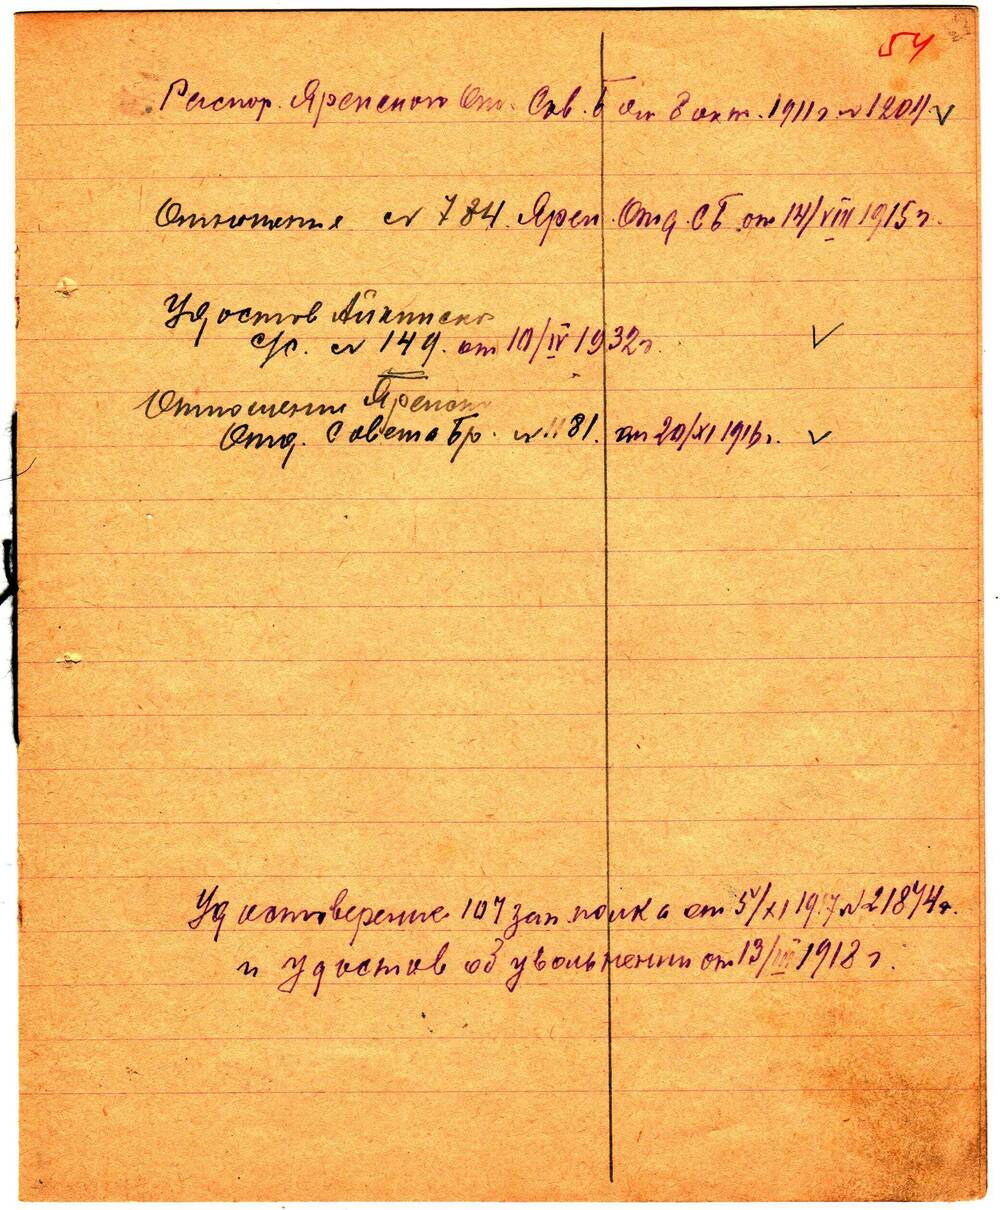 54
Распор. Яренского От. Сов. Б от 8 окт. 1911 г. № 1204 ✓
Отношение № 784. Ярен. Отд. С Б от 14/VIII 1915 г.
Удостов Айкинско
с/с. № 149. от 10/IV 1932 г. ✓
Отношении Яренско
Отд. Совета Бр. № 1181. от 20/XI 1916 г. ✓
Удостоверение 107 зап. полка от 5/XI 1917 № 21874
и удостов об увольнении от 13/III 1918 г.